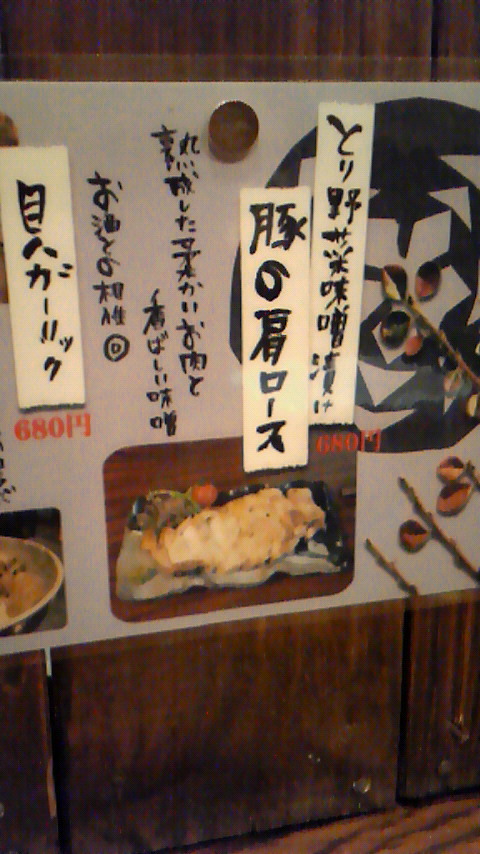 とり野菜味噌漬け
豚の肩ロース
680円
熟成した柔かいお肉と
香ばしい味噌
お酒との相性◎
貝ガーリック
680円